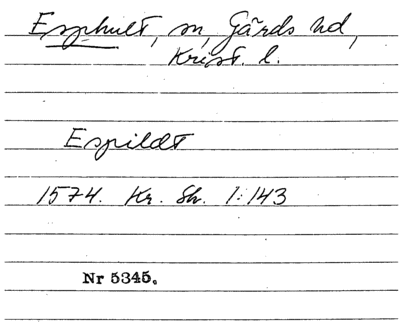 Esphult, sn, Gärds hd,
Krist. l.
Espildt
1574. Kr. Sk. 1:143
Nr 5345.